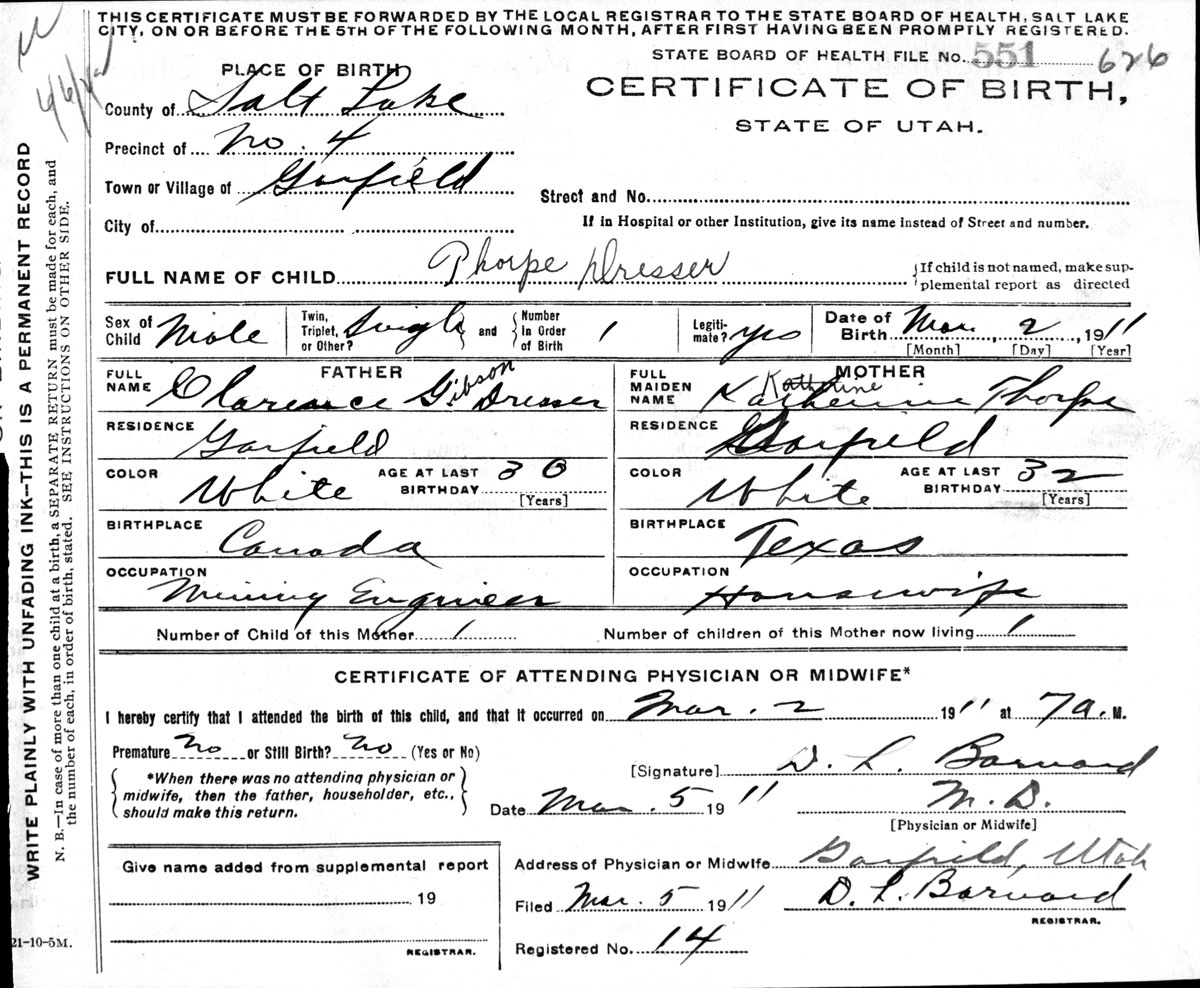 THIS CERTIFICATE MUST BE FORWARDED BY THE LOCAL REGISTRAR TO THE STATE BOARD OF HEALTH, SALT LAKE
CITY, ON OR BEFORE THE 5TH OF THE FOLLOWING MONTH, AFTER FIRST HAVING BEEN PROMPTLY REGISTERED.
STATE BOARD OF HEALTH FILE NO. 551 626
PLACE OF BIRTH
CERTIFICATE OF BIRTH,
STATE OF UTAH.
County of Salt Lake
Precinct of No. 4
Town or Village of Garfield
Street and No.
City of
If in Hospital or other Institution, give its name instead of Street and number.
FULL NAME OF CHILD Thorpe Dresser
{If child is not named, make sup-
plemental report as directed
Sex of Child Male
Twin, Triplet, or Other? Single and Number In Order of Birth 1
Legiti-mate? Yes
Date of Birth Mar. 2, 1911
[Month] [Day] [Year]
FATHER
FULL NAME Clarence Gibson Dresser
MOTHER
FULL MAIDEN NAME Katherine Katherine Thorpe
RESIDENCE Garfield
RESIDENCE Garfield
COLOR White AGE AT LAST BIRTHDAY 30 [Years]
COLOR White AGE AT LAST BIRTHDAY 32 [Years]
BIRTHPLACE Canada
BIRTHPLACE Texas
OCCUPATION Mining Engineer
OCCUPATION Housewife
Number of Child of this Mother 1
Number of children of this Mother now living 1
CERTIFICATE OF ATTENDING PHYSICIAN OR MIDWIFE*
I hereby certify that I attended the birth of this child, and that it occurred on Mar. 2 1911 at 7 a. M.
Premature No or Still Birth? No (Yes or No)
*When there was no attending physician or
midwife, then the father, householder, etc.,
should make this return.
[Signature] D. L. Barnard
Date Mar. 5 1911 M. D.
[Physician or Midwife]
Give name added from supplemental report
19
REGISTRAR.
Address of Physician or Midwife Garfield, Utah
Filed Mar. 5 1911 D. L. Barnard
REGISTRAR.
Registered No. 14
21-10-5M.
WRITE PLAINLY WITH UNFADING INK--THIS IS A PERMANENT RECORD
N. B.—In case of more than one child at a birth, a SEPARATE RETURN must be made for each, and
the number of each, in order of birth, stated. SEE INSTRUCTIONS ON OTHER SIDE.